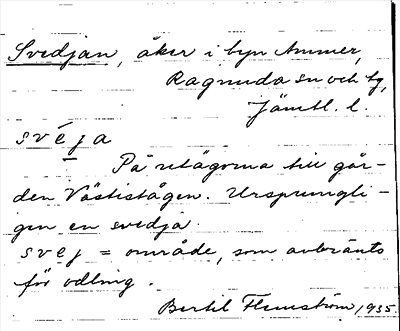 Svedjan, åker i byn Ammer,
Ragunda sn och tg,
Jämtl. l.
svéja
På utägorna till går-
den Västistågen. Ursprungli-
gen en svedja.
svej = område, som avbränts
för odling.
Bertil Flemström, 1935